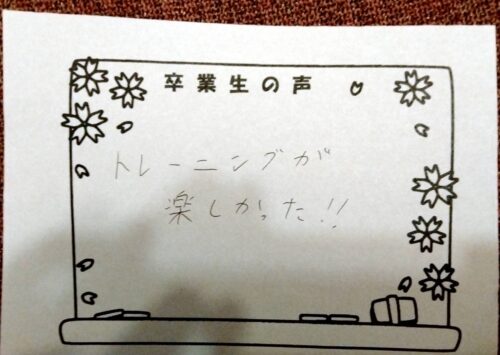 卒業生の声
トレーニングが
楽しかった!!